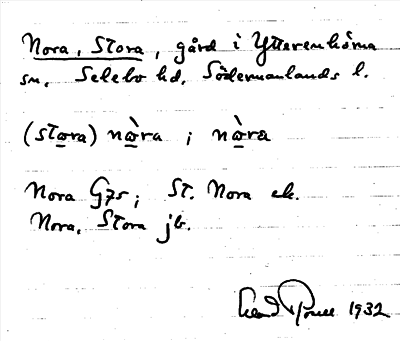 Nora, Stora, gård i Ytterenhörna
sn. Selebo hd. Södermanlands l.
(stωra) nὼra ; nὼra
Nora G7s; St. Nora ek.
Nora, Stora jb.
1932